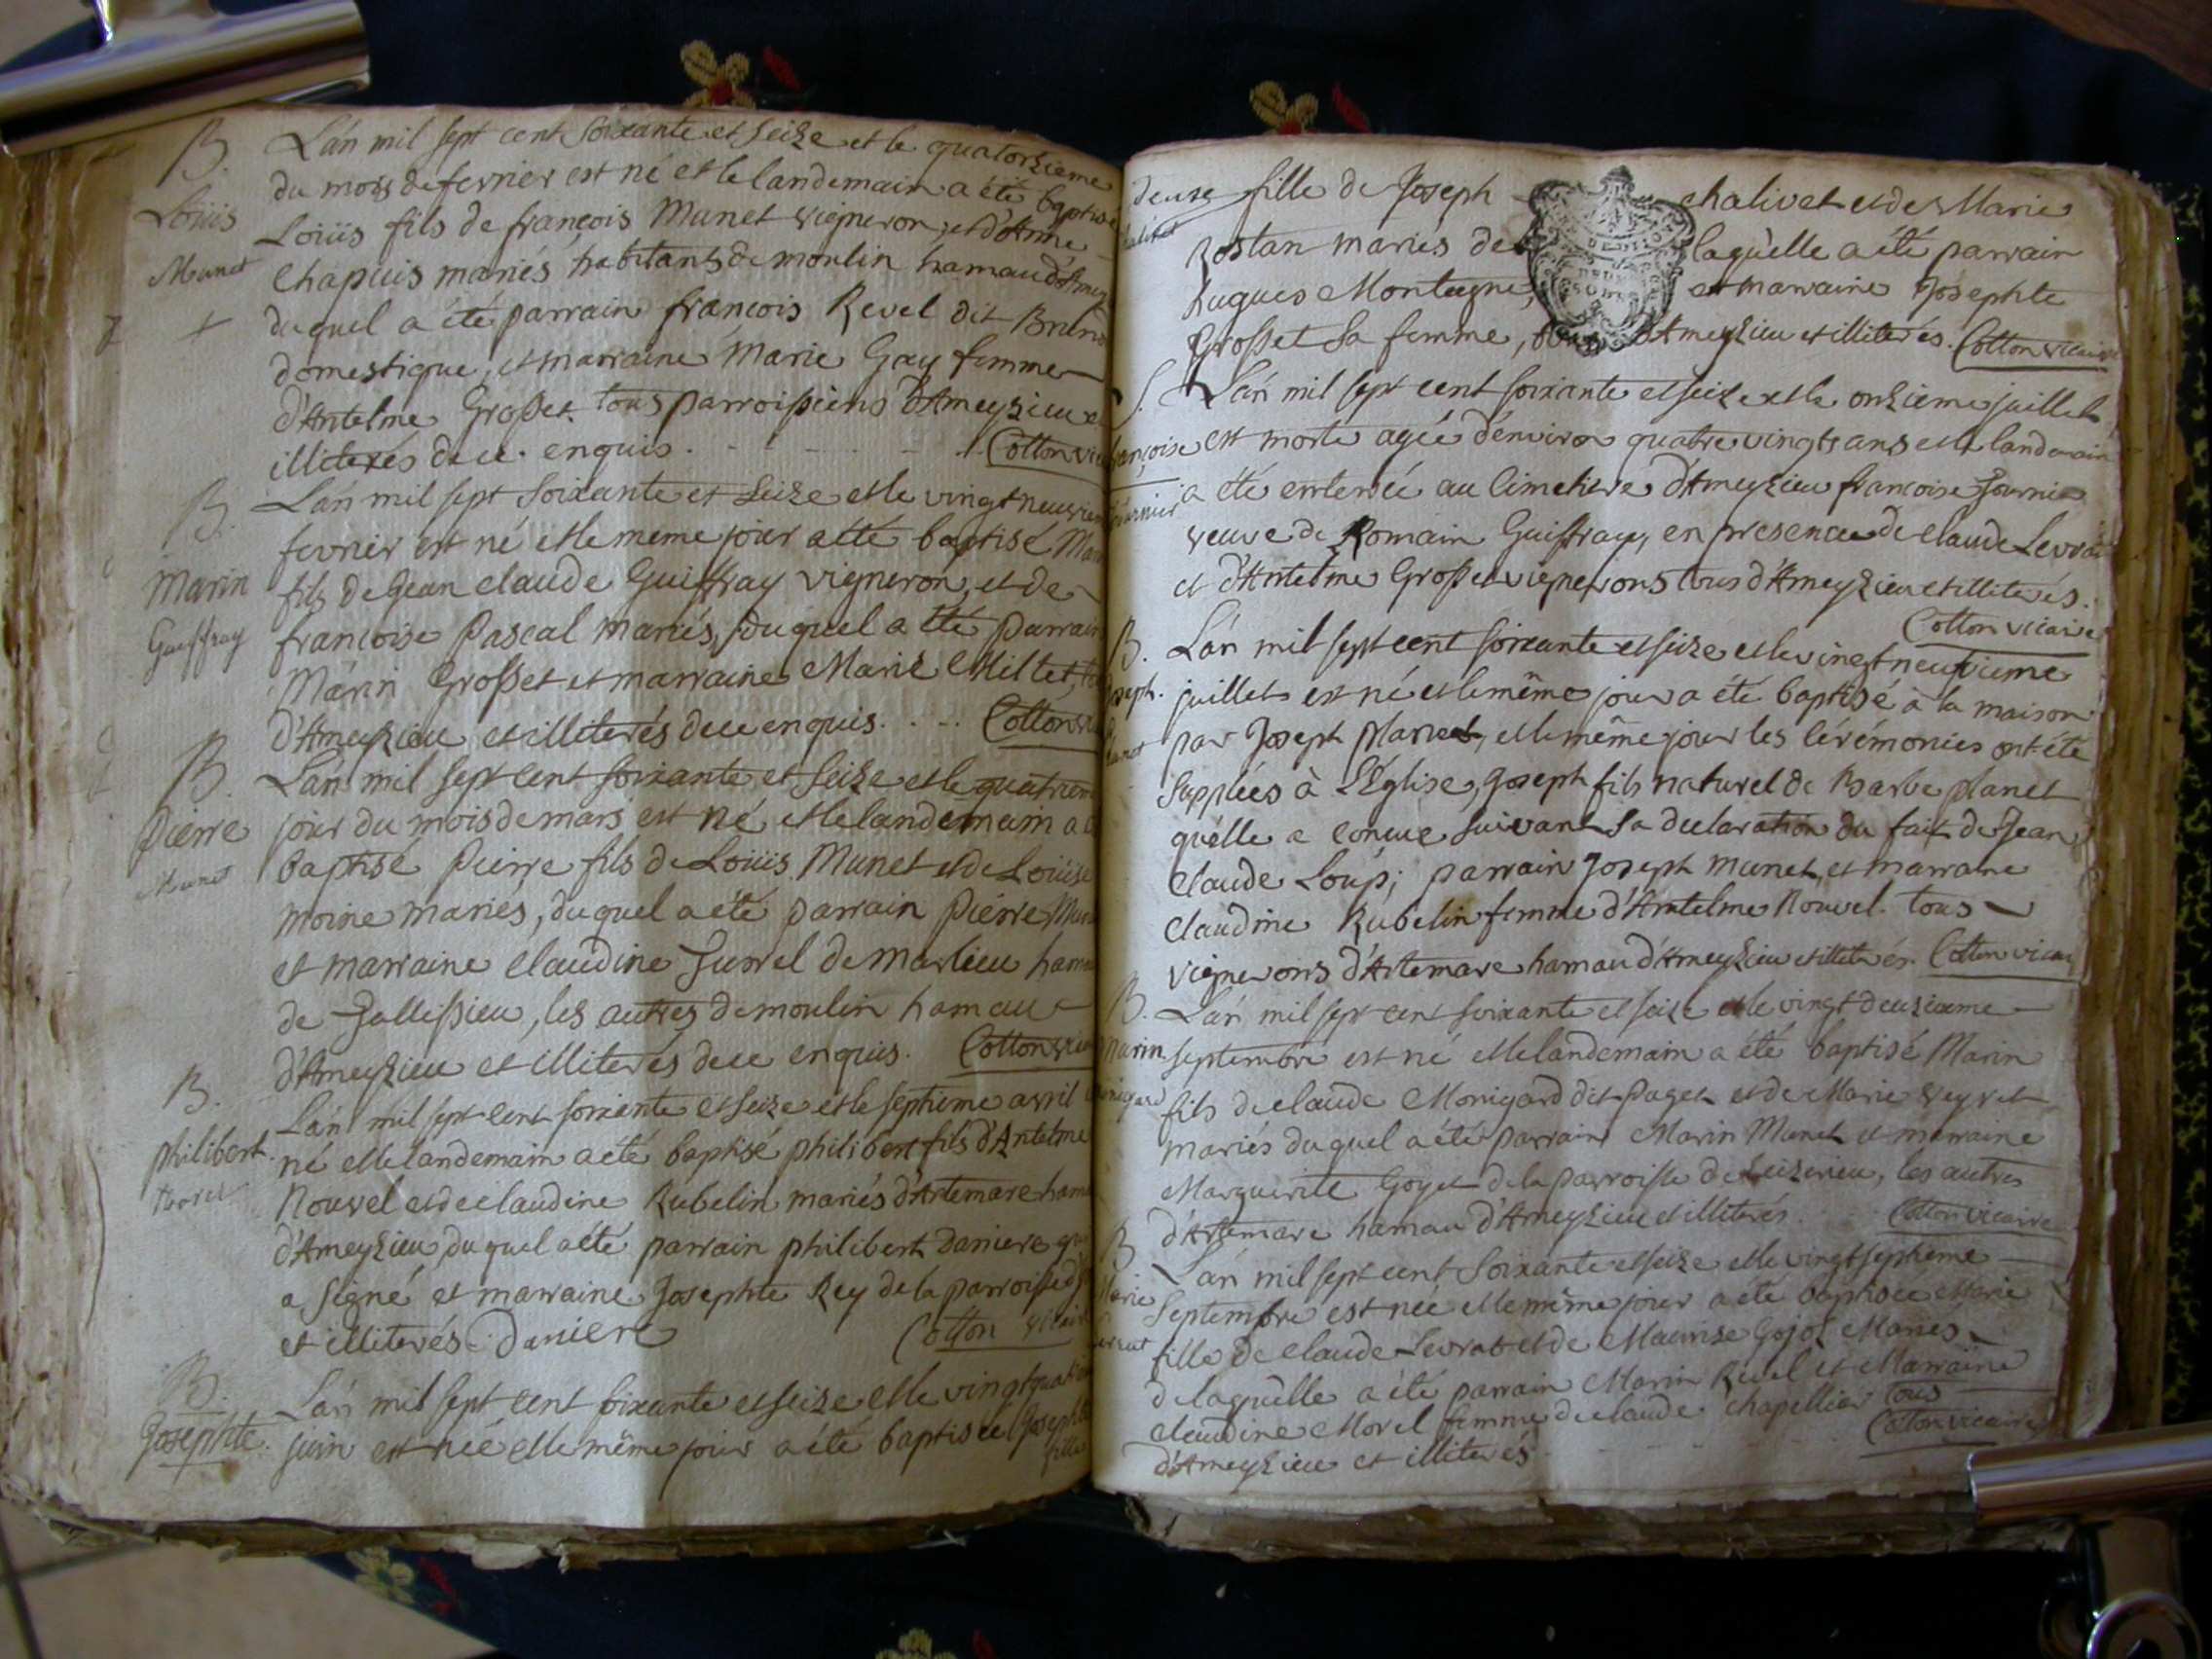 B. L'an mil sept cent soixante et seize et le quatorzieme
du mois de fevrier est né et le landemain a été baptisé
Loüis Loüis fils de françois Munet vigneron, et d'Anne
Munet Chapuis mariés habitants de moulin hamau
duquel a été parrain françois Revel dit Brun
domestique, et marraine Marie Gay femme
d'Antelme Grosset tous parroissiens d'Ameyzieu et
illiterés de ce enquis. Cotton
B. L'an mil sept soixante et seize et le vingt neuvie
fevrier est né et le meme jour a été baptisé
Marin fils de Jean claude Guiffray vigneron, et de
Guiffray francoise Pascal mariés, duquel a été parrain
Marin Grosset et marraine Marie Millet,
d'Ameyzieu et illiterés de ce enquis. Cotton
B. L'an mil sept cent soixante et seize et le quatriem
Pierre jour du mois de mars est né et le landemain a
Munet baptisé Pierre fils de Loüis Munet et de Loüise
moine mariés, duquel a été parrain Pierre
et marraine claudine Juvrel de Marlieu
de Tallissieu, les autres de moulin hamau
d'Ameyzieu et illiterés de ce enquis. Cotton
B. L'an mil sept cent soixante et seize et le septieme avril
philibert. né et le landemain a été baptisé philibert fils d'Antelme
Nouvel et de claudine Rubelin mariés d'Artemare
d'Ameyzieu, duquel a été parrain philibert Daniere
a signé et marraine Josephte Rey de la parroisse
et illiterés. Daniere Cotton vicaire
B. L'an mil sept cent soixante et seize et le vingt
Josephte. juin est née et le même jour a été baptisée Josephte
fille
deuse fille de Joseph chalivet et de Marie
Rostan mariés de laquelle a été parrain
hugues Montagne, et marraine Josephte
Grosset sa femme, d'Ameyzieu et illiterés. Cotton vicaire
S. L'an mil sept cent soixante et seize et le onzieme juillet
françoise est morte agée d'environ quatre vingts ans et le landemain
fournier a été enterrée au cimetiere d'Ameyzieu francoise fournier
veuve de Romain Guiffray, en presence de claude Levrat
et d'Antelme Grosset vignerons tous d'Ameyzieu et illiterés.
Cotton vicaire
B. L'an mil sept cent soixante et seize et le vingt neufvieme
Joseph. juillet est né et le même jour a été baptisé à la maison
par Joseph et le même jour les cérémonies ont été
supplées à L'Eglise, Joseph fils naturel de Barbe planet
qu'elle a concue suivant sa declaration du fait de Jean
claude Loup; parrain Joseph munet, et marraine
claudine Rubelin femme d'Antelme Nouvel. tous
vignerons d'Artemare hamau d'Ameyzieu et illiterés. Cotton vicaire
B. L'an mil sept cent soixante et seize et le vingt deuzieme
Marin septembre est né et le landemain a été baptisé Marin
fils de claude Monigard dit Paget et de Marie veyret
mariés duquel a été parrain Marin Munet et marraine
Marguerite Goyet de la parroisse de Ceizerieu, les autres
d'Artemare hamau d'Ameyzieu et illiterés. Cotton vicaire
B. L'an mil sept cent soixante et seize et le vingt septieme
Marie septembre est née et le même jour a été baptisée Marie
fille de claude Levrat et de Maurise Gojoz Mariés
de laquelle a été parrain Marin Revel et Marraine
claudine Morel femme de claude chapellier tous
d'Ameyzieu et illiterés Cotton vicaire